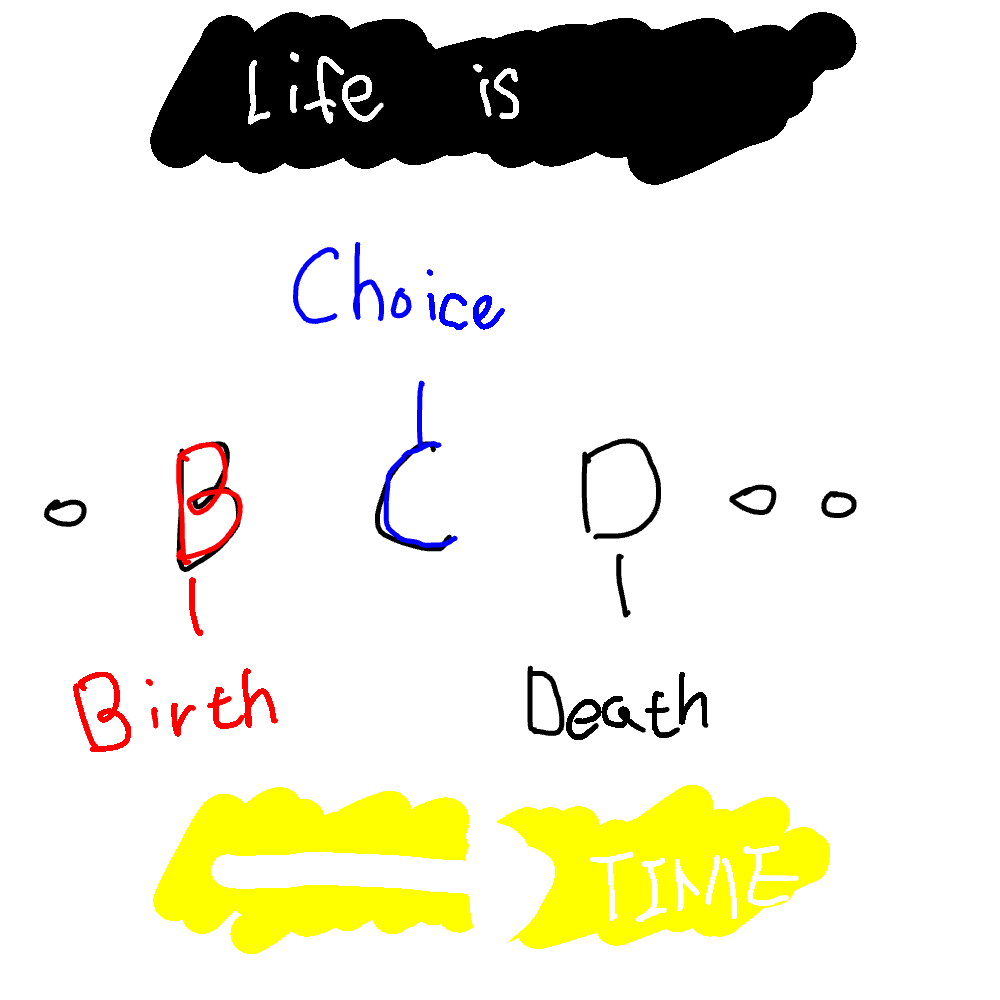 Life is
Choice
B C D
Birth Death
TIME